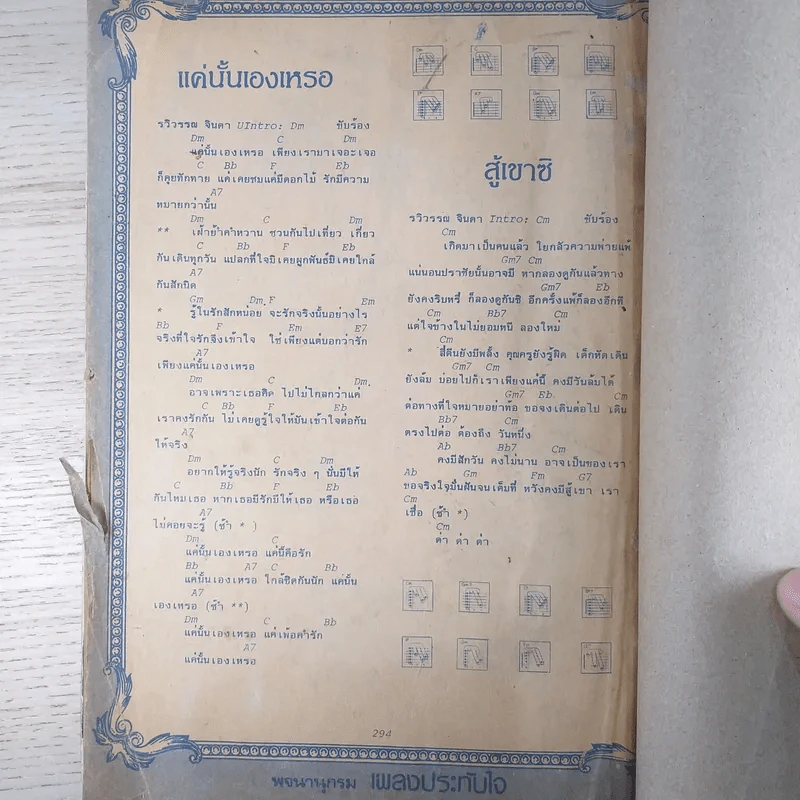 แค่นั้นเองเหรอ
รวิวรรณ จินดา UIntro: Dm ขับร้อง
Dm C Dm
แค่นั้นเองเหรอ เพียงเรามาเจอะเจอ
C Bb F Eb
ก็คุยทักทาย แค่เคยชมแค่มีดอกไม้ รักมีความ
A7
หมายกว่านั้น
Dm C Dm
** เฝ้าย้ำคำหวาน ชวนกันไปเที่ยว เกี่ยว
C Bb F Eb
กันเดินทุกวัน แปลกที่ใจมิเคยผูกพันธ์มิเคยใกล้
A7
กันสักนิด
Gm Dm F Em
* รู้ในรักสักหน่อย จะรักจริงนั้นอย่างไร
Bb F Em E7
จริงที่ใจรักจึงเข้าใจ ใช่เพียงแต่บอกว่ารัก
A7
เพียงแค่นั้นเองเหรอ
Dm C Dm
อาจเพราะเธอคิด ไปไม่ไกลกว่าแค่
C Bb F Eb
เราคงรักกัน ไม่เคยดูรู้ใจให้มันเข้าใจต่อกัน
A7
ให้จริง
Dm C Dm
อยากให้รู้จริงนัก รักจริง ๆ นั่นมีให้
C Bb F Eb
กันไหมเธอ หากเธอมีรักมีให้เธอ หรือเธอ
A7
ไม่คอยจะรู้ (ซ้ำ * )
Dm C
แค่นั้นเองเหรอ แค่นี้คือรัก
Bb A7 C Bb
แค่นั้นเองเหรอ ใกล้ชิดกันนัก แค่นั้น
A7
เองเหรอ (ซ้ำ **)
Dm C Bb
แค่นั้นเองเหรอ แค่เพ้อคำรัก
A7
แค่นั้นเองเหรอ
สู้เขาซิ
รวิวรรณ จินดา Intro: Cm ขับร้อง
Cm
เกิดมาเป็นคนแล้ว ใยกลัวความพ่ายแพ้
Gm7 Cm
แน่นอนปราชัยนั้นอาจมี หากลองดูกันแล้วทาง
Gm7 Eb
ยังคงริบหรี่ ก็ลองดูกันซิ อีกครั้งแพ้ก็ลองอีกที
Cm Bb7 Cm
แต่ใจข้างในไม่ยอมหนี ลองใหม่
Cm
* สี่ตีนยังมีพลั้ง คุณครูยังรู้ผิด เด็กหัดเดิน
Gm7 Cm
ยังล้ม บ่อยไปก็เราเพียงแค่นี้ คงมีวันล้มได้
Gm7 Eb Cm
ต่อทางที่ใจหมายอย่าท้อ ขอจงเดินต่อไป เดิน
Bb7 Cm
ตรงไปต่อ ต้องถึง วันหนึ่ง
Ab Bb7 Cm
คงมีสักวัน คงไม่นาน อาจเป็นของเรา
Ab Gm Fm G7
ขอจริงใจมั่นฝันจนเต็มที่ หวังคงมีสู้เขา เรา
Cm
เชื่อ (ซ้ำ *)
Cm
ด่า ด่า ด่า
294
พจนานุกรม เพลงประทับใจ